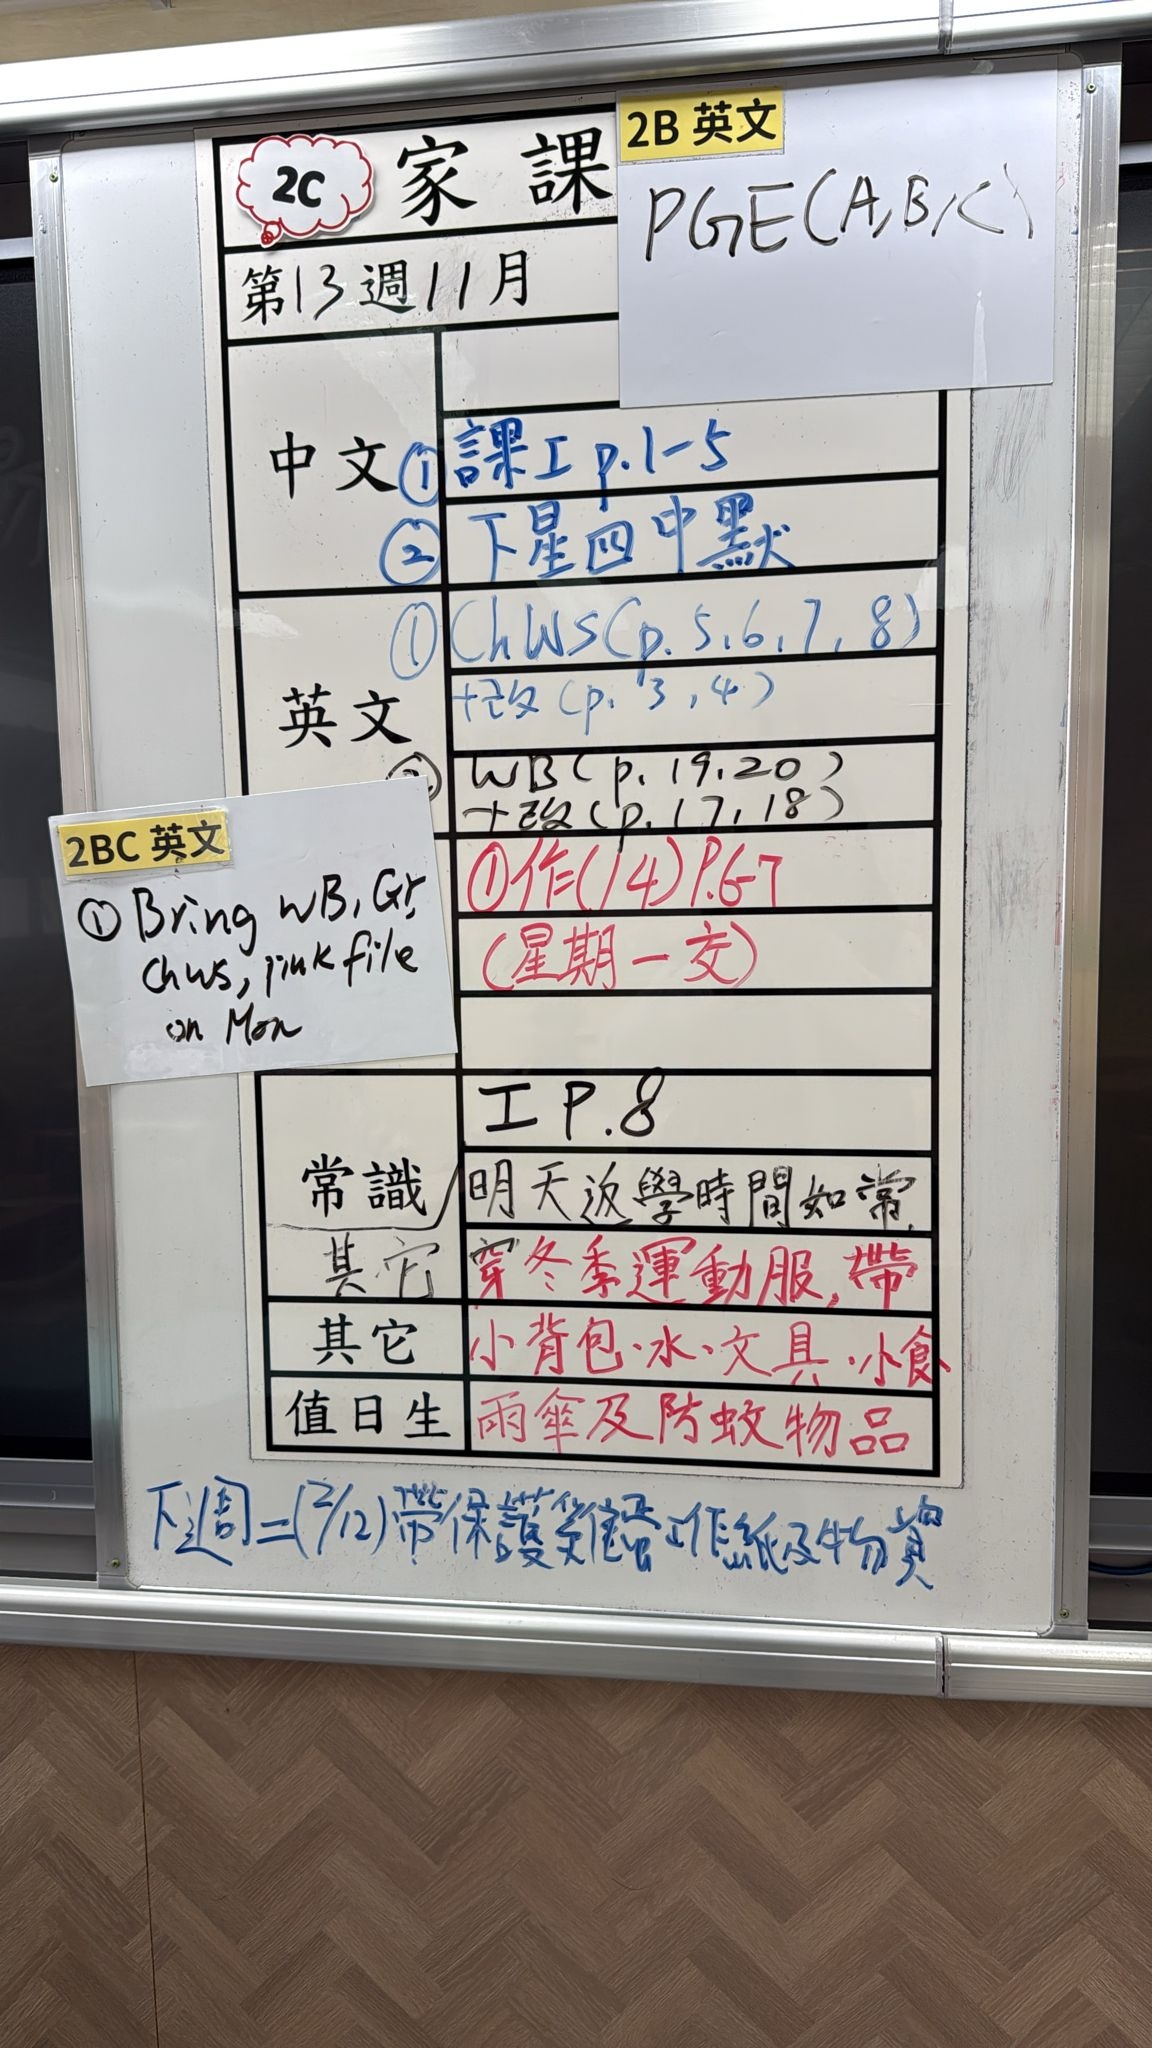 2C
家課
2B 英文
PGE(A,B,C)
第13週11月
中文
① 課工 p.1-5
② 下星四中默
英文
① ChWS(p.5,6,7,8)
+改(p.3,4)
② WB(p.19,20)
+改(p.17,18)
2BC 英文
① Bring WB, Gr,
ChWS, pink file
on Mon
①作(14)P.6-7
(星期一交)
常識
工 P.8
明天返學時間如常,
其它
穿冬季運動服,帶
其它
小背包、水、文具、小食
值日生
雨傘及防蚊物品
下週二(2/12)帶保護雞蛋工作紙及物資